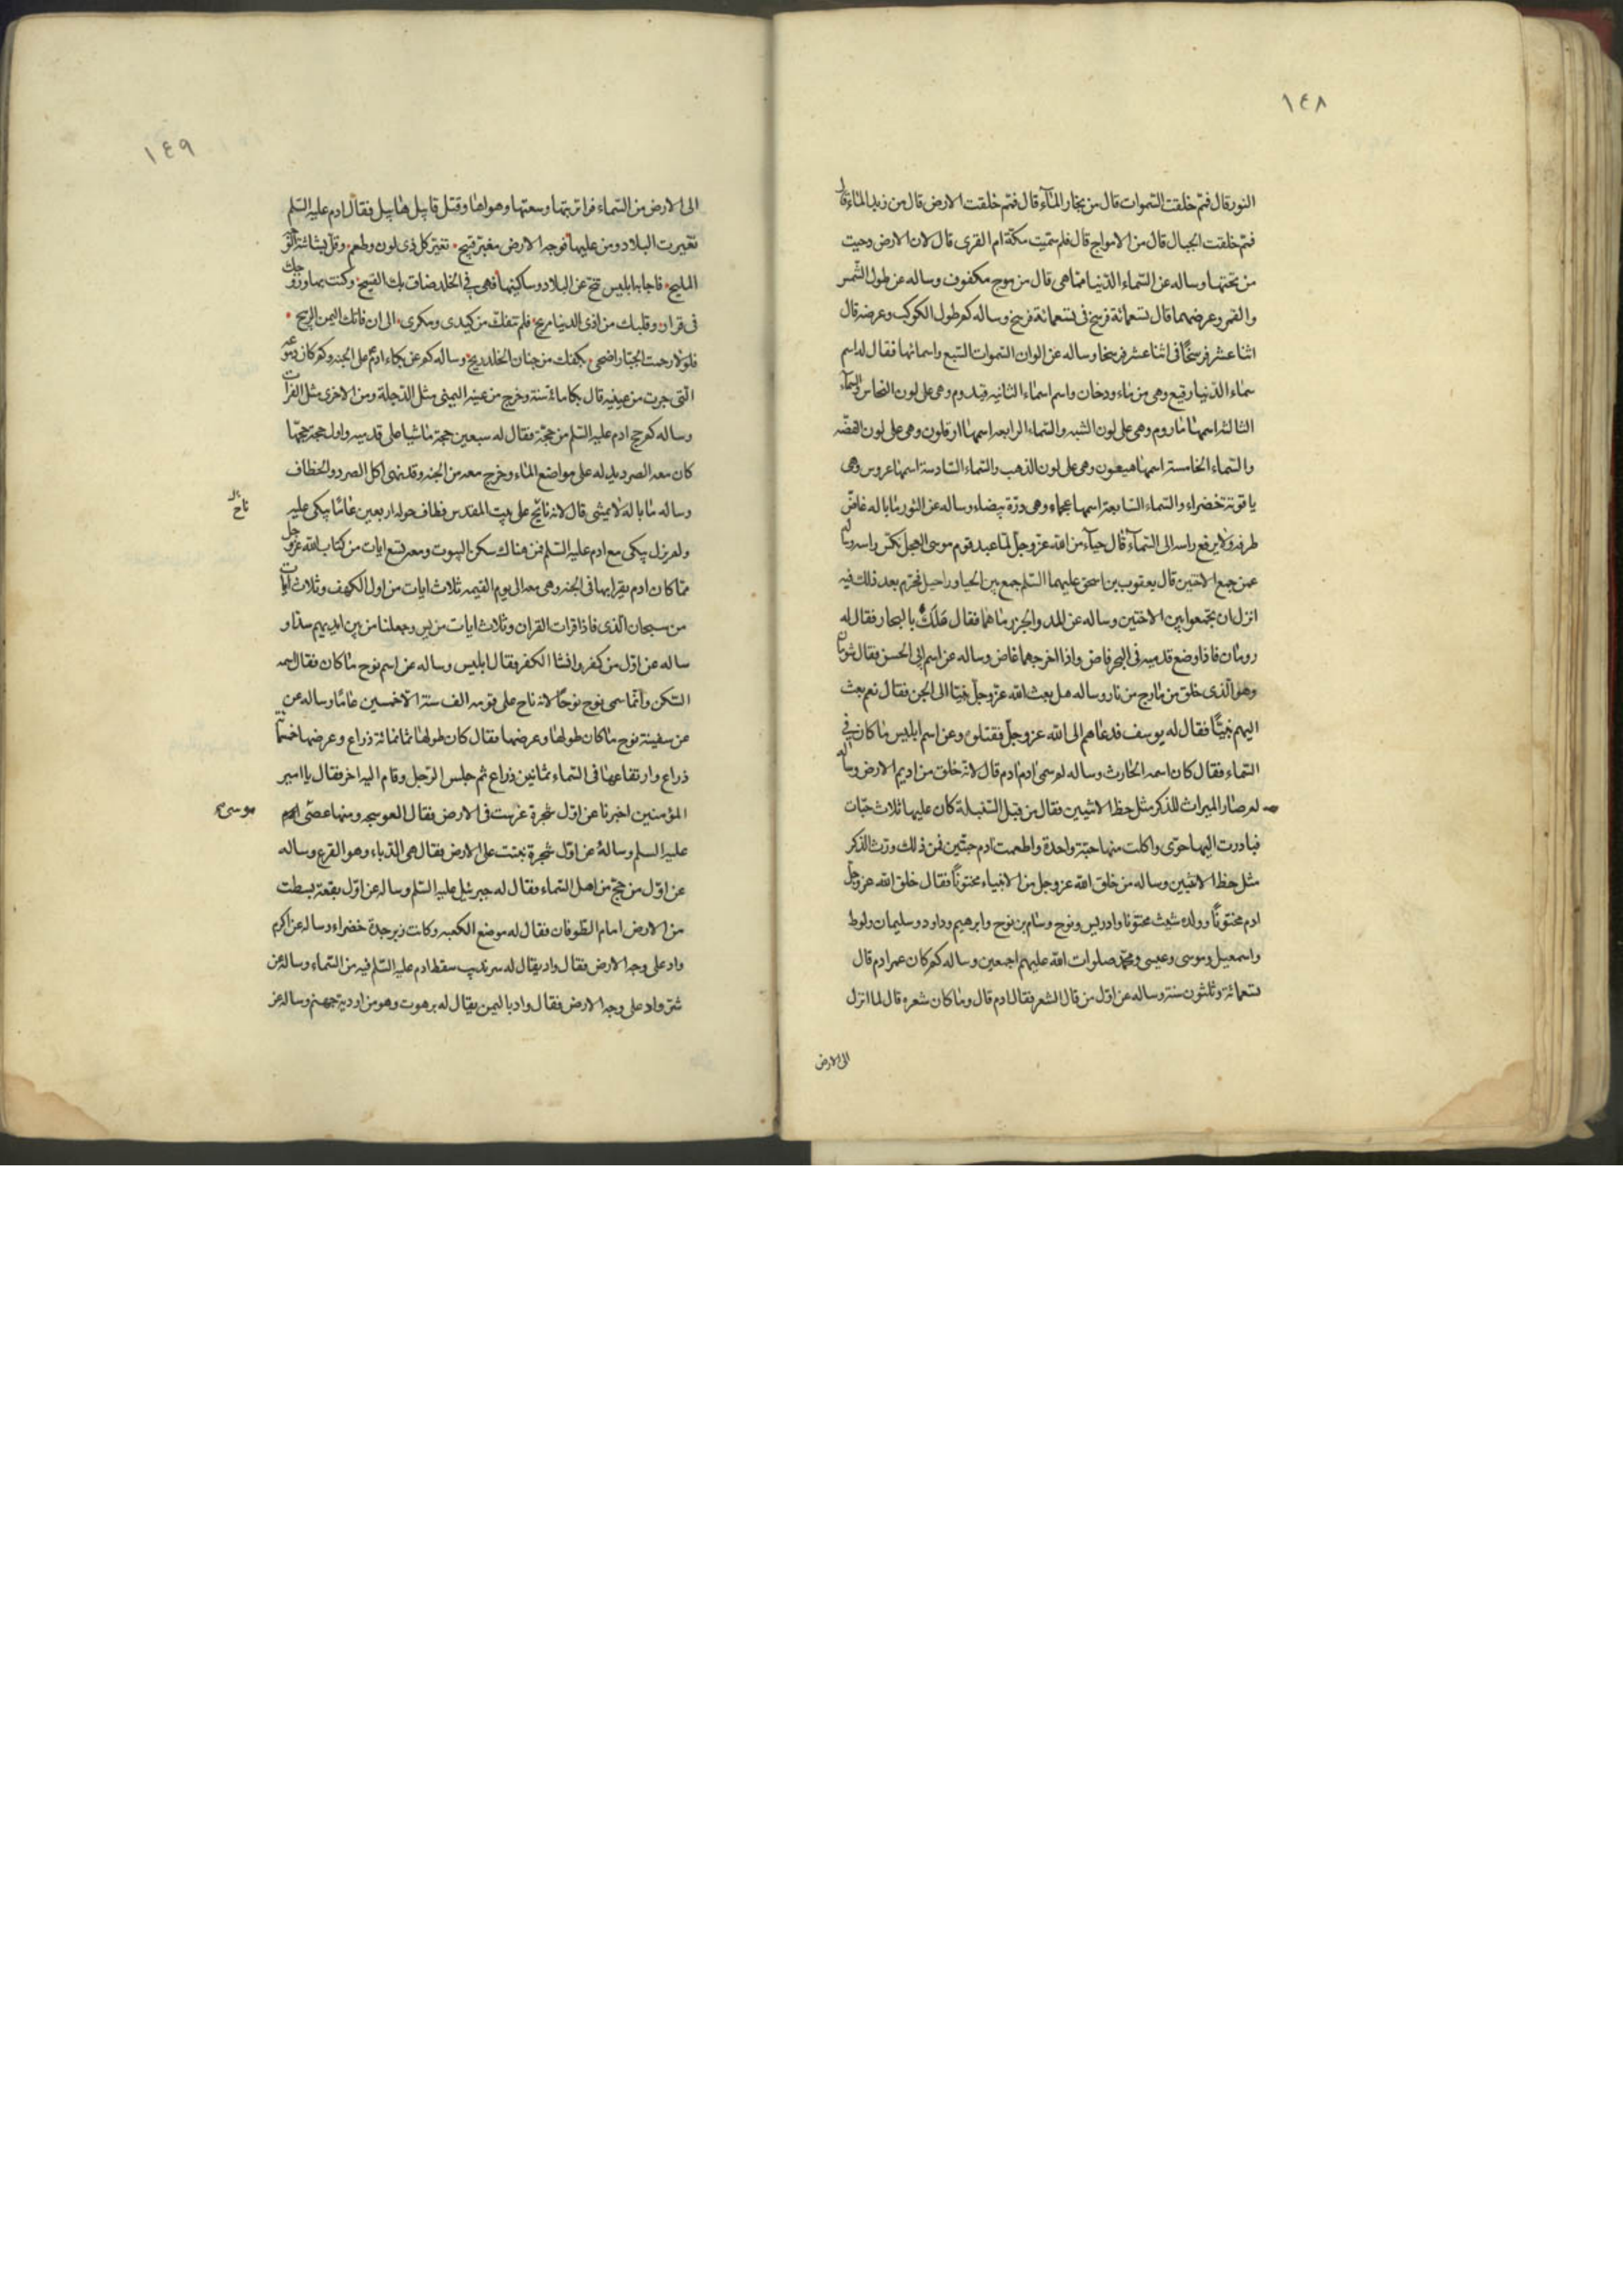 ١٤٨
النور قال فمم خلقت السموات قال من بخار المآء قال فمم خلقت الارض قال من زبد الماء قال
فمم خلقت الجبال قال من الامواج قال فلم سميت مكة ام القرى قال لان الارض دحيت
من تحتها وساله عن السماء الدنيا مما هى قال من موج مكفوف وساله عن طول الشمس
والقمر وعرضهما قال تسعمائة فرسخ فى تسعمائة فرسخ وساله كم طول الكوكب وعرضه قال
اثنا عشر فرسخًا فى اثنا عشر فرسخا وساله عن الوان السموات السبع واسمائها فقال له اسم
سماء الدنيا رقيع وهى من ماء ودخان واسم اسماء الثانيه قيدوم وهى على لون النحاس والسمآء
الثالثه اسمها ماروم وهى على لون الشبه والسماء الرابعه اسمها ارقلون وهى على لون الفضّه
والسماء الخامسة اسمها هيعون وهى على لون الذهب والسماء السادسة اسمها عروس وهى
ياقوتة خضراء والسماء السابعة اسمها عجماء وهى درّة بيضاء وساله عن الثور ما باله غاضّ
طرفه ولا يرفع راسه الى السمآء قال حيآء من الله عزوجلّ لما عبد قوم موسى العجل نكس راسه وساله
عمن جمع الاختين قال يعقوب بن اسحق عليهما السّلم جمع بين الحيا وراحيل فحرّم بعد ذلك فيه
انزل ان تجمعوا بين الاختين وساله عن المد والجزر ما هما فقال مَلَكٌ بالبحار فقال له
رومان فاذا وضع قدميه فى البحر فاض واذا اخرجهما غاض وساله عن اسم ابى الجن فقال شومان
وهو الّذى خلق من مارج من نار وساله هل بعث الله عزوجلّ نبيّا الى الجن فقال نعم بعث
اليهم نبيًّا فقال له يوسف فدعاهم الى الله عزوجلّ فقتلوه وعن اسم ابليس ما كان فى
السماء فقال كان اسمه الحارث وساله لم سمى ادم ادم قال لانّه خلق من اديم الارض وساله
لم صار الميراث للذكر مثل حظ الانثيين فقال من قبل السنبلة كان عليها ثلاث حبّات
فبادرت اليها حوّى واكلت منها حبّة واحدة واطعمت ادم حبّتين فمن ذلك ورث الذكر
مثل حظ الانثيين وساله من خلق الله عزوجل من الانبياء مختونًا فقال خلق الله عزوجلّ
ادم مختونًا وولد شيث مختونا وادريس ونوح وسام بن نوح وابرهيم وداود وسليمان ولوط
واسمعيل وموسى وعيسى ومحمّد صلوات الله عليهم اجمعين وساله كم كان عمر ادم قال
تسعمائة وثلثون سنة وساله عن اوّل من قال الشعر فقال ادم قال وما كان شعره قال لما انزل
الى الارض
١٤٩
الى الارض من السماء فراى تربتها وسعتها وهواها وقتل قابيل هابيل فقال ادم عليه السّلم
تغيرت البلاد ومن عليها فوجه الارض مغبّر قبيح تغيّر كل ذى لون وطعم وقلّ بشاشة الوجه
المليح فاجابه ابليس تنح عن البلاد وساكنيها فهى فى الخلد ضاق بك الفسيح وكنت بها وزوجك
فى قرار وقلبك من اذى الدنيا مريح فلم تنفك من كيدى ومكرى الى ان فاتك الثمن الربيح
فلولا رحمة الجبار اضحى بكفك من جنان الخلد ريح وساله كم عن بكاء ادم على الجنه وكم كان دموعه
الّتى جرت من عينيه قال بكا مائة سنة وخرج من عينه اليمنى مثل الدّجلة ومن الاخرى مثل الفرات
وساله كم حج ادم عليه السّلم من حجّة فقال له سبعين حجة ماشيا على قدميه واول حجة حجّها
كان معه الصرد يدله على مواضع الماء وخرج معه من الجنه وقد نهى اكل الصرد والخطاف
وساله ما باله لا يمشى قال لانه ناح على بيت المقدس فطاف حوله اربعين عامًا يبكى عليه
ولم يزل يبكى مع ادم عليه السّلم فمن هناك سكن البيوت ومعه تسع ايات من كتاب الله عزوجل
ممّا كان ادم يقرا بها فى الجنه وهى معه الى يوم القيمه ثلاث ايات من اول الكهف وثلاث ايات
من سبحان الّذى فاذا قرات القران وثلاث ايات من يس وجعلنا من بين ايديهم سدّا و
ساله عن اوّل من كفر وانشا الكفر فقال ابليس وساله عن اسم نوح ما كان فقال اسمه
السّكن وانّما سمى نوح نوحًا لانه ناح على قومه الف سنة الّا خمسين عامًا وساله عن
عن سفينة نوح ما كان طولها وعرضها فقال كان طولها ثمانمائة ذراع وعرضها خمسمائة
ذراع وارتفاعها فى السماء ثمانين ذراع ثم جلس الرّجل وقام اليه اخر فقال يا امير
المؤمنين اخبرنا عن اوّل شجرة غرست فى الارض فقال العوسجه ومنها عصى
موسى
عليه السلم وسالهُ عن اوّل شجرة نبتت على الارض فقال هى الدّباء وهو القرع وساله
عن اوّل من حجّ من اهل السماء فقال له جبرئيل عليه السّلم وساله عن اوّل بقعة بسطت
من الارض امام الطّوفان فقال له موضع الكعبه وكانت زبرجدة خضراء وساله عن اكرم
واد على وجه الارض فقال واد يقال له سرنديب سقط ادم عليه السّلم فيه من السّماء وساله عن
شرّ واد على وجه الارض فقال واد باليمن يقال له برهوت وهو من اودية جهنم وساله عن